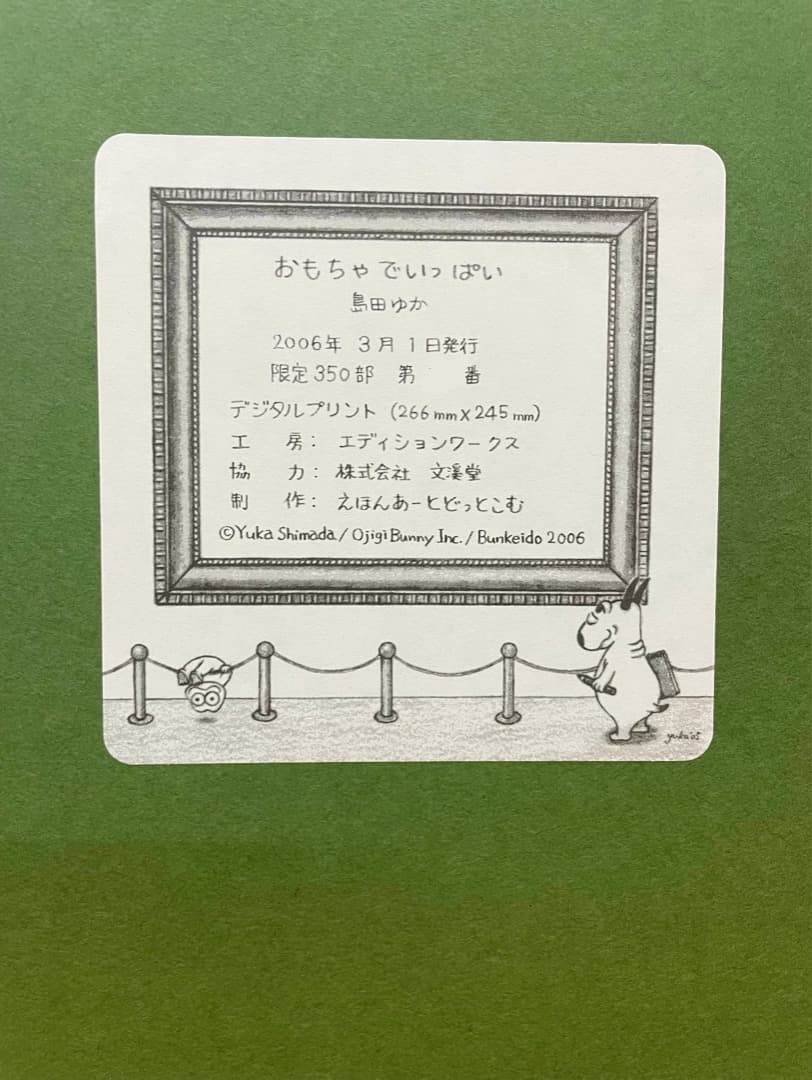 おもちゃでいっぱい
島田ゆか
2006年 3月1日発行
限定350部 第 番
デジタルプリント (266mm×245mm)
工 房： エディションワークス
協 力： 株式会社 文溪堂
制 作： えほんあーとどっとこむ
©Yuka Shimada/Ojigi Bunny Inc./Bunkeido 2006
yuka'05